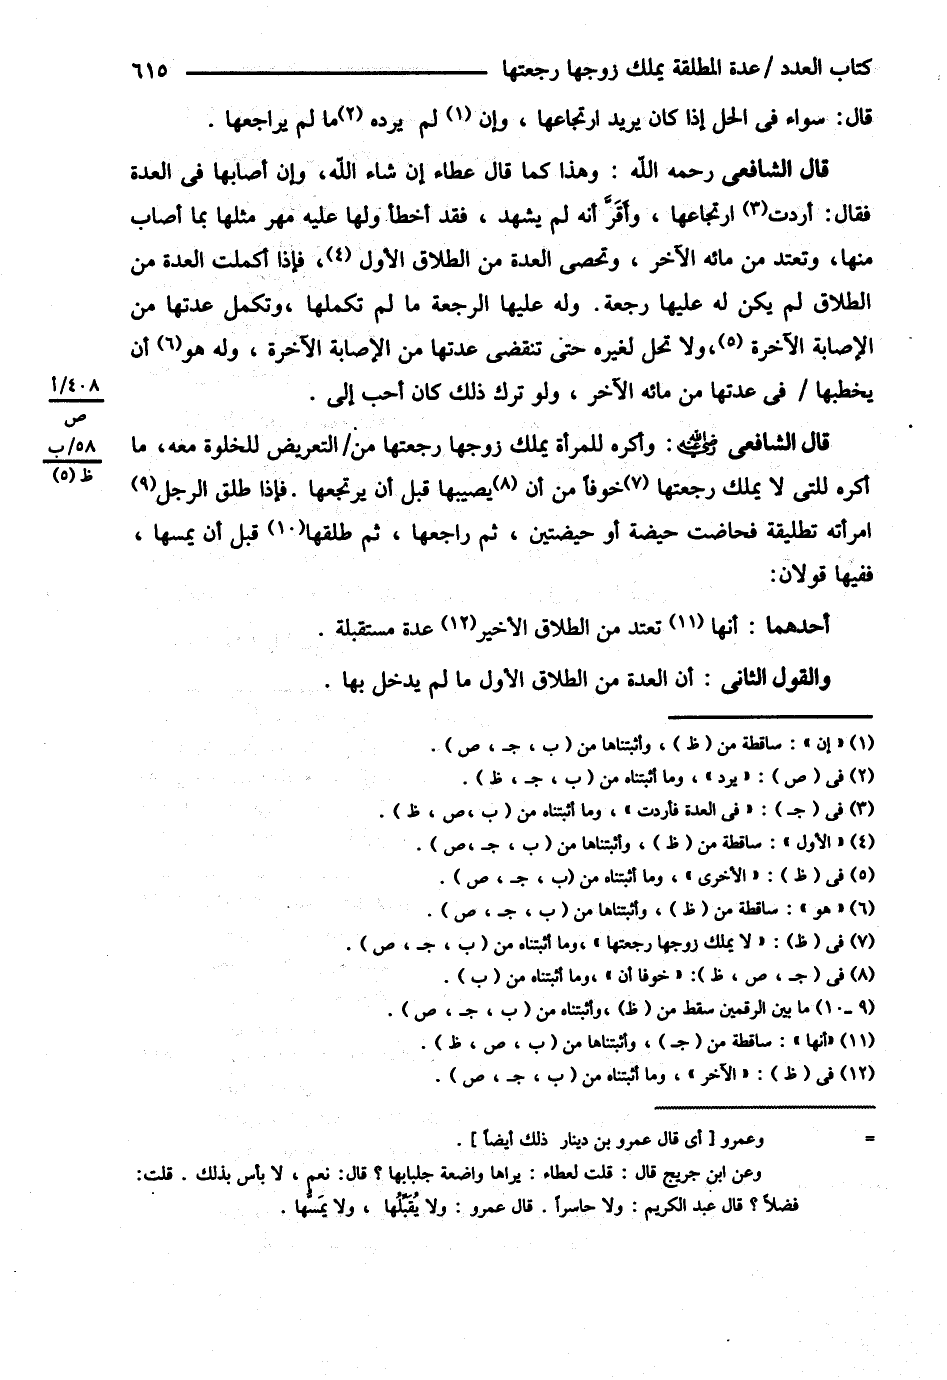 كتاب العدد / عدة المطلقة يملك زوجها رجعتها ــــــــــــــــــــ ٦١٥
قال: سواء فى الحل إذا كان يريد ارتجاعها ، وإن (١) لم يرده (٢)ما لم يراجعها .
قال الشافعى رحمه اللّه : وهذا كما قال عطاء إن شاء اللّه، وإن أصابها فى العدة
فقال: أردت(٣) ارتجاعها ، وأَقَرَّ أنه لم يشهد ، فقد أخطأ ولها عليه مهر مثلها بما أصاب
منها، وتعتد من مائه الآخر ، وتحصى العدة من الطلاق الأول (٤)، فإذا أكملت العدة من
الطلاق لم يكن له عليها رجعة. وله عليها الرجعة ما لم تكملها ،وتكمل عدتها من
الإصابة الآخرة (٥)،ولا تحل لغيره حتى تنقضى عدتها من الإصابة الآخرة ، وله هو(٦) أن
يخطبها / فى عدتها من مائه الآخر ، ولو ترك ذلك كان أحب إلى .
٤٠٨/أ
ص
قال الشافعى ﵁ : وأكره للمرأة يملك زوجها رجعتها من/ التعريض للخلوة معه، ما
٥٨/ب
ظ (٥)
أكره للتى لا يملك رجعتها (٧)خوفاً من أن (٨)يصيبها قبل أن يرتجعها .فإذا طلق الرجل(٩)
امرأته تطليقة فحاضت حيضة أو حيضتين ، ثم راجعها ، ثم طلقها(١٠) قبل أن يمسها ،
ففيها قولان:
أحدهما : أنها (١١) تعتد من الطلاق الأخير(١٢) عدة مستقبلة .
والقول الثانى : أن العدة من الطلاق الأول ما لم يدخل بها .
(١) « إن » : ساقطة من ( ظ ) ، وأثبتناها من ( ب ، جـ ، ص ) .
(٢) فى ( ص ) : « يرد » ، وما أثبتناه من ( ب ، جـ ، ظ ) .
(٣) فى ( جـ ) : « فى العدة فأردت » ، وما أثبتناه من ( ب ،ص ، ظ ) .
(٤) « الأول » : ساقطة من ( ظ ) ، وأثبتناها من ( ب ، جـ ،ص ) .
(٥) فى ( ظ ) : « الأخرى » ، وما أثبتناه من (ب ، جـ ، ص ) .
(٦) « هو » : ساقطة من ( ظ ) ، وأثبتناها من ( ب ، جـ ، ص ) .
(٧) فى ( ظ) : « لا يملك زوجها رجعتها » ،وما أثبتناه من ( ب ، جـ ، ص ) .
(٨) فى ( جـ ، ص ، ظ ): « خوفا أن » ،وما أثبتناه من ( ب ) .
(٩ ـ ١٠) ما بين الرقمين سقط من ( ظ) ،وأثبتناه من ( ب ، جـ ، ص ) .
(١١) «أنها » : ساقطة من ( جـ ) ، وأثبتناها من ( ب ، ص ، ظ ) .
(١٢) فى ( ظ ) : « الآخر » ، وما أثبتناه من ( ب ، جـ ، ص ) .
= وعمرو [ أى قال عمرو بن دينار ذلك أيضاً ] .
وعن ابن جريج قال : قلت لعطاء : يراها واضعة جلبابها ؟ قال: نعم ، لا بأس بذلك . قلت:
فضلاً ؟ قال عبد الكريم : ولا حاسراً . قال عمرو : ولا يُقَبِّلُها ، ولا يَمَسُّها .